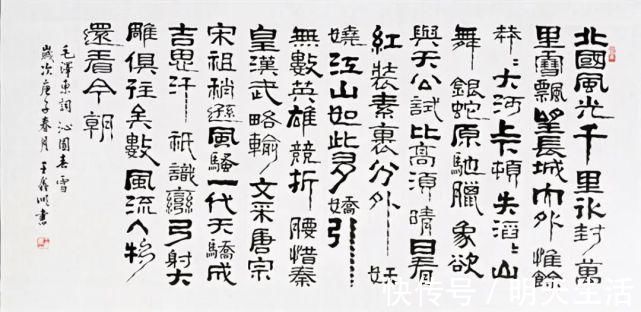 北國風光千里氷封萬
里雪飄望長城內外惟餘
莽〻大河上下頓失滔〻山
舞銀蛇原馳臘象欲
與天公試比高須晴日看
紅裝素裹分外妖
嬈江山如此多嬌引
無數英雄競折腰惜秦
皇漢武略輸文采唐宗
宋祖稍遜風騷一代天驕成
吉思汗祇識彎弓射大
雕俱往矣數風流人物
還看今朝
毛澤東詞沁園春雪
歲次庚子春月王書
快传号/明天生活